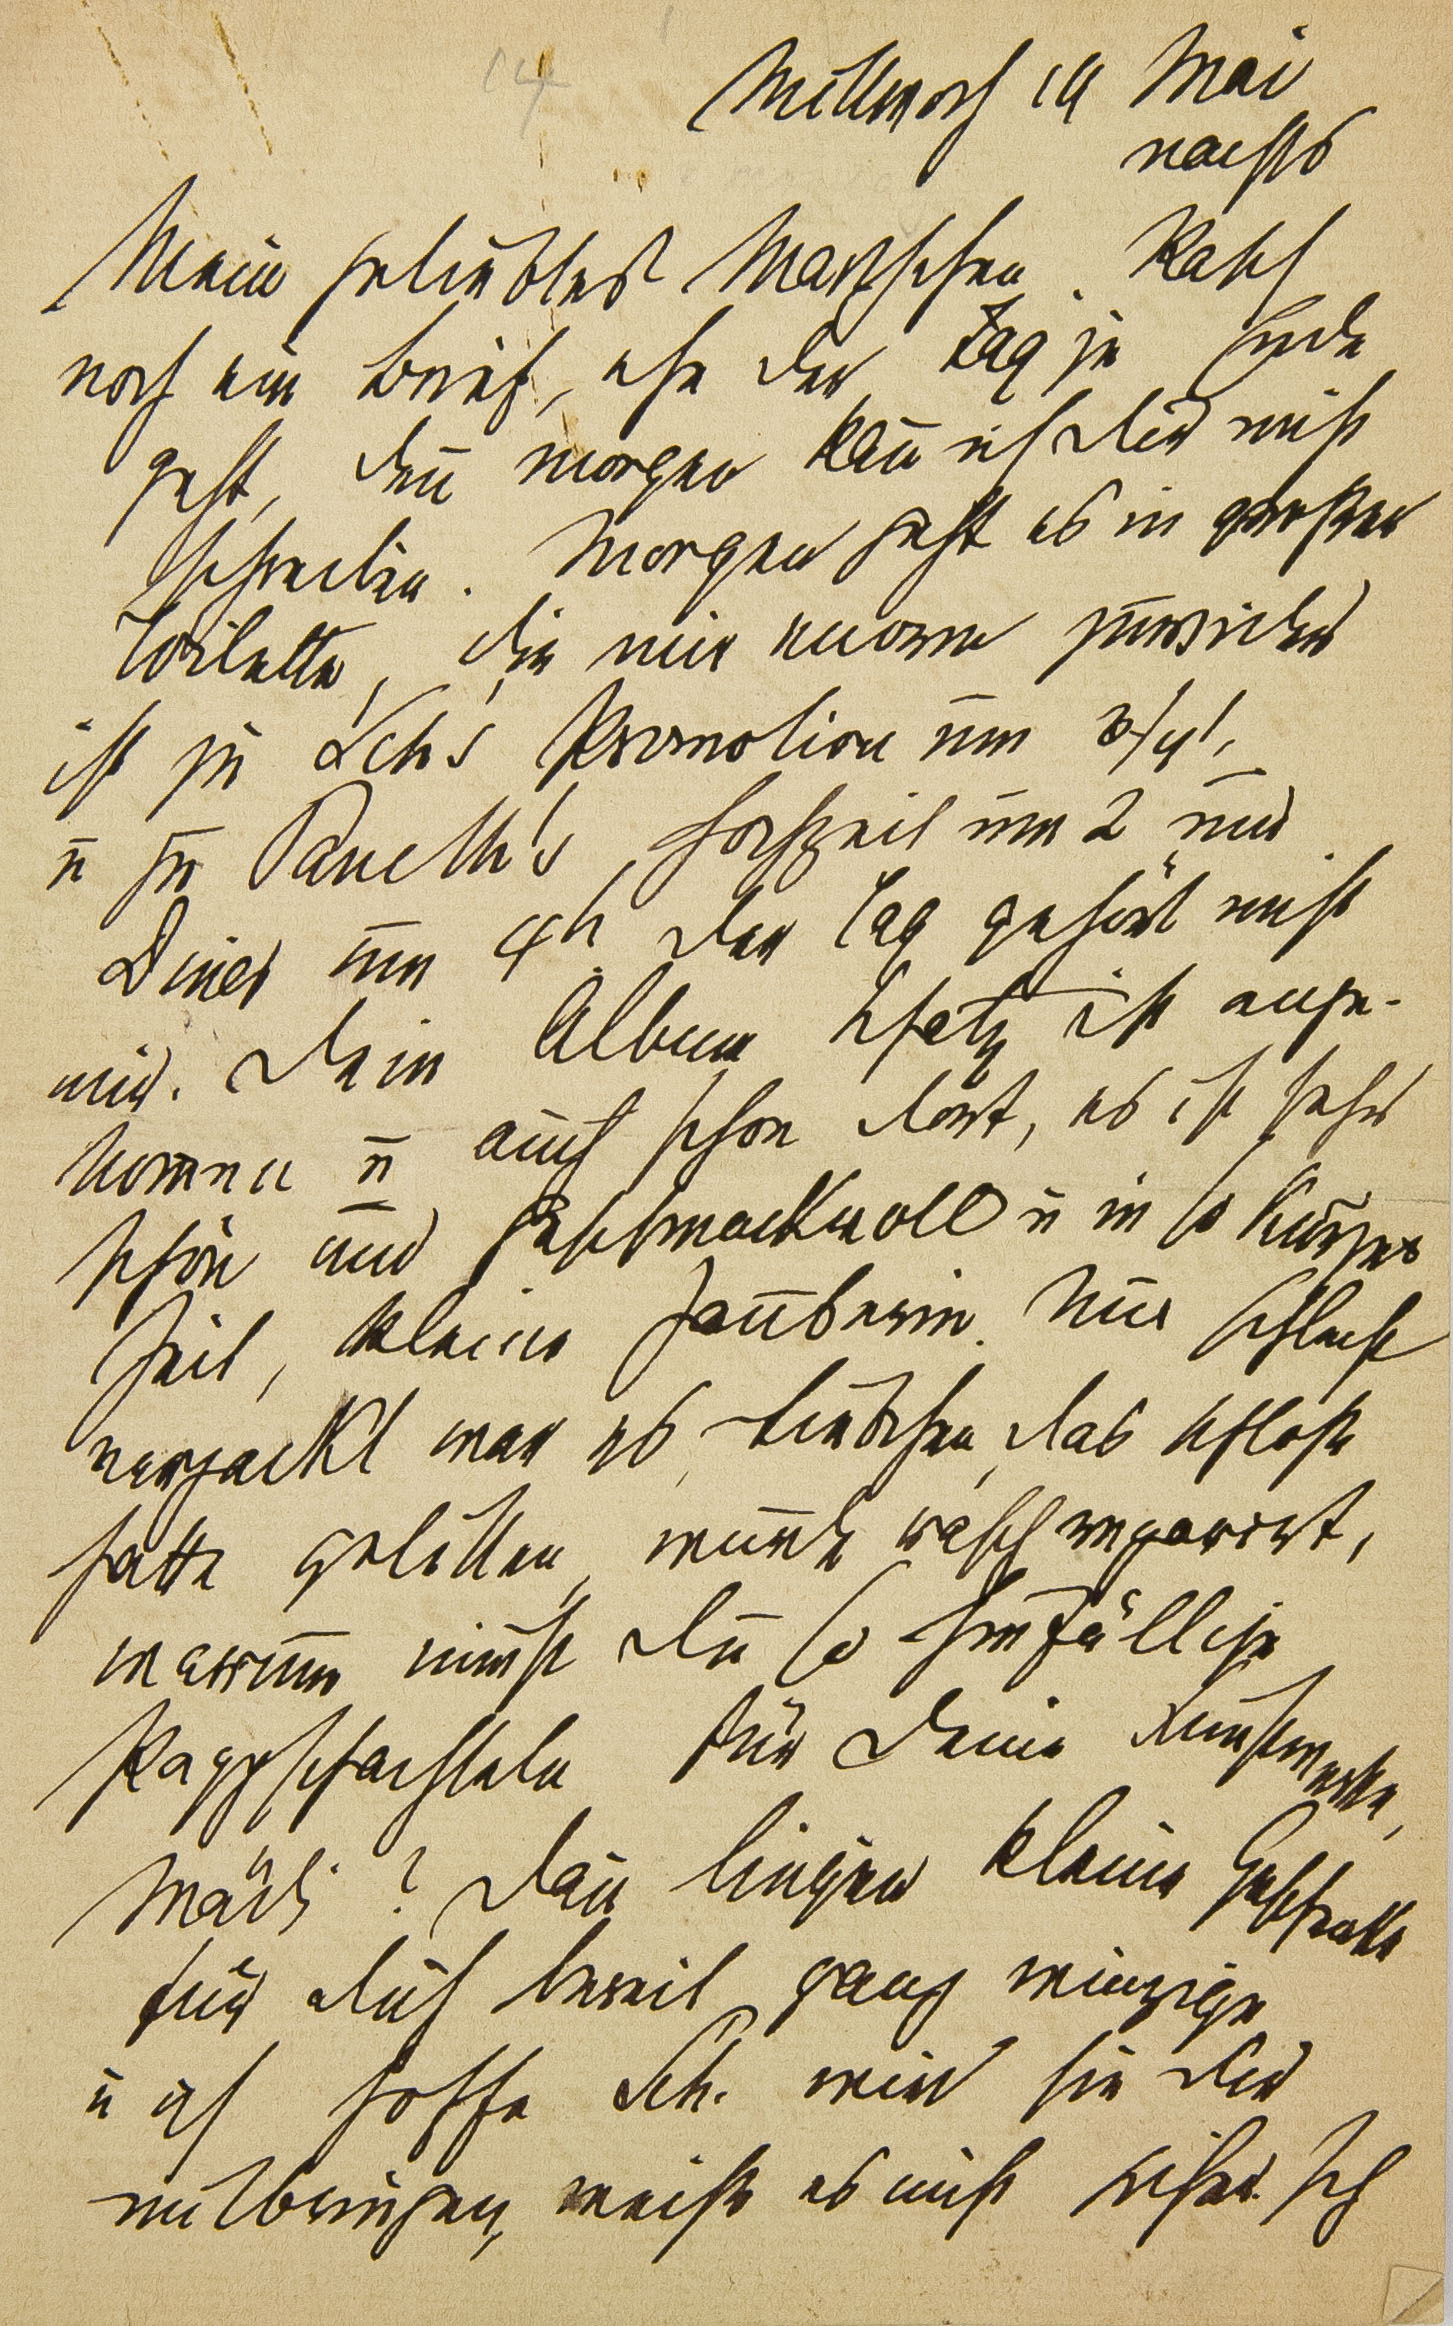 14
Mittwoch 14 Mai
nachts
Mein geliebtes Marthchen. Rasch
noch ein Brief, ehe der Tag zu Ende
geht, deñ morgen kañ ich Dir nicht
schreiben. Morgen geht es in großer
Toilette, die mir enorm zuwider
ist zu Sch's Promotion um 3/41,
u zu Paneth's Hochzeit um 2 und
Diner um 4h. Der Tag gehört nicht
mir. Dein Album Schatz ist ange-
kommen u auch schon dort, es ist sehr
schön und geschmackvoll u in so kurzer
Zeit, kleine Zauberin. Nur schlecht
verpackt war es, Liebchen, das Schloß
hatte gelitten, wurde rasch repariert,
warum nim̄st Du so hinfällige
Pappschachteln für Deine Kunstwerke,
Marthi? Dañ liegen kleine Geschenke
für Dich bereit ganz winzige
u ich hoffe Sch. wird sie Dir
mitbringen, weiß es nicht sicher. Ich